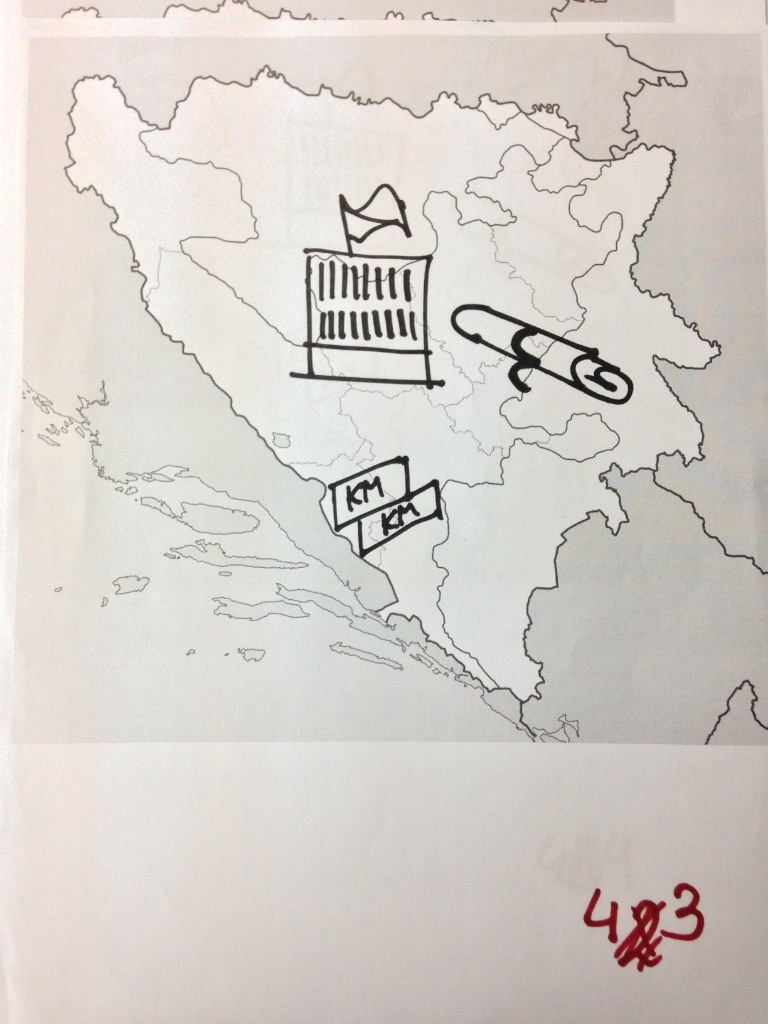 KM
KM
4 3